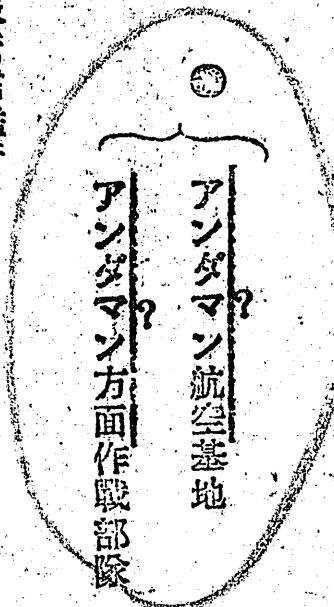 アンダマン?航空基地
アンダマン?方面作戰部隊